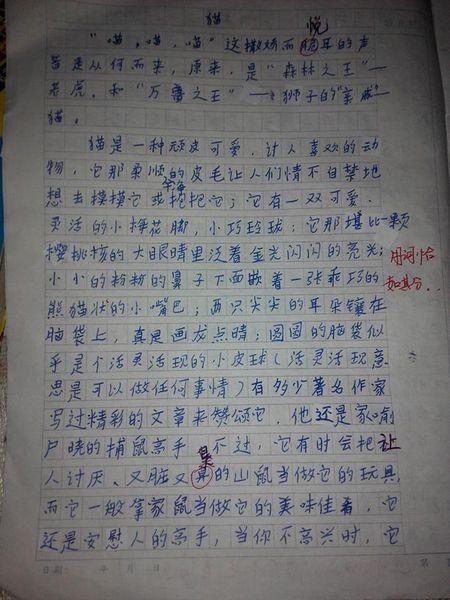 猫
悦
“喵，喵，喵”这撒娇而脆耳的声
音是从何而来，原来，是“森林之王”—
老虎，和“万兽之王”——狮子的“亲戚”—
猫。
猫是一种顽皮可爱，讨人喜欢的动
物，它那柔顺的皮毛让人们情不自禁地
想去摸摸它或抱抱它；它有一双可爱、
灵活的小梅花脚，小巧玲珑；它那堪比一颗
樱桃核的大眼睛里泛着金光闪闪的亮光；
用词恰
小小的粉粉的鼻子下面嵌着一张乖巧的
如其分..
熊猫状的小嘴巴；两只尖尖的耳朵镶在
脑袋上，真是画龙点睛；圆圆的脑袋似
乎是个活灵活现的小皮球（活灵活现意
思是可以做任何事情）有多少著名作家
写过精彩的文章来赞颂它，他还是家喻
户晓的捕鼠高手，不过，它有时会把让
臭
人讨厌、又脏又的山鼠当做它的玩具，
而它一般拿家鼠当做它的美味佳肴，它
还是安慰人的高手，当你不高兴时，它
日期： 年 月 日
第